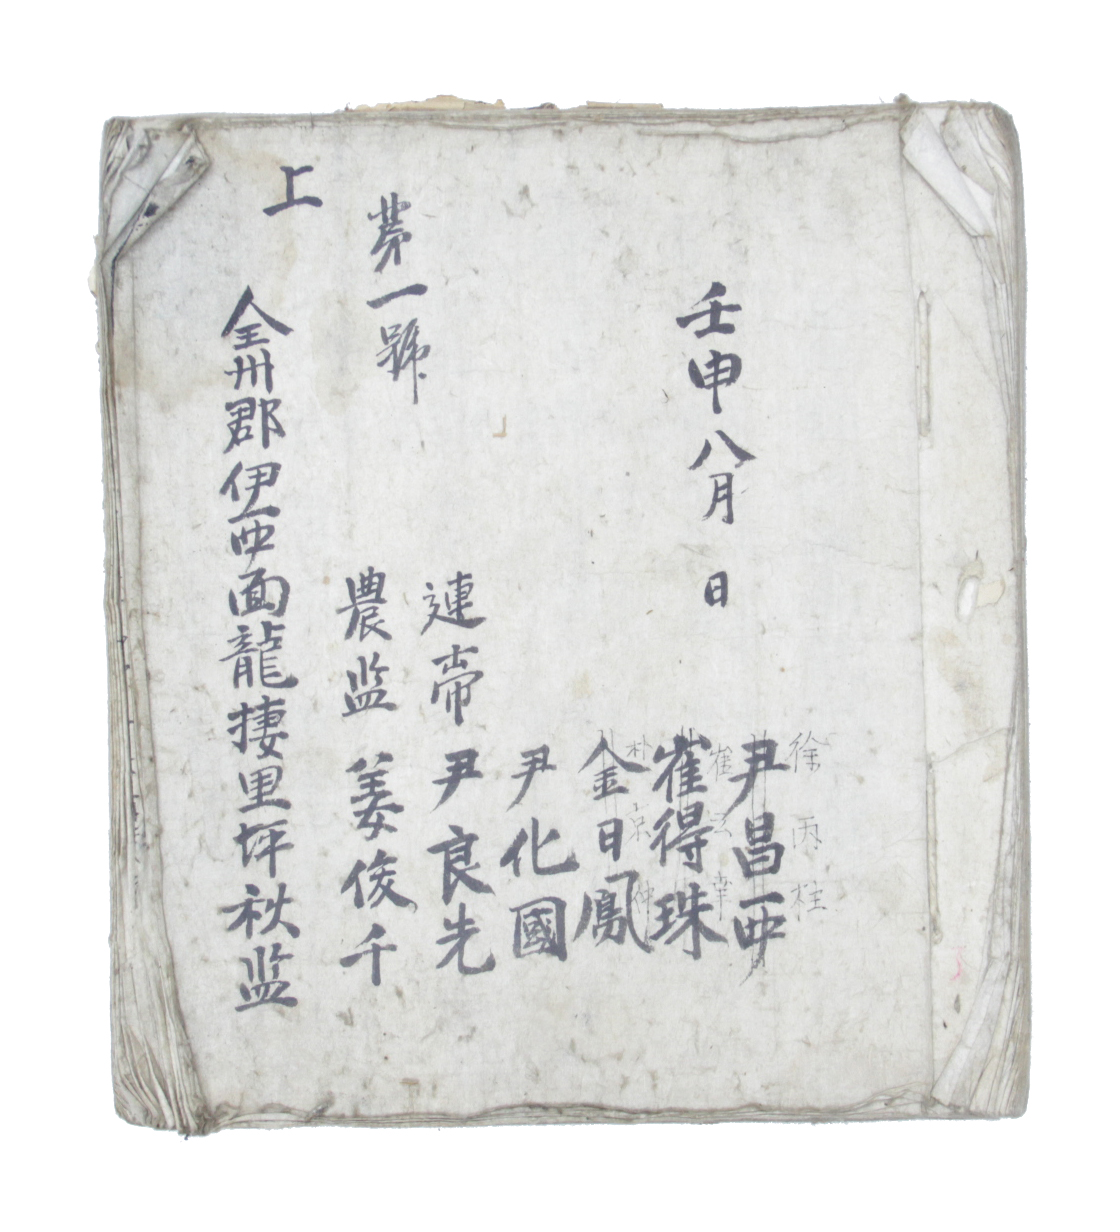 壬申八月 日
徐丙柱
尹昌西
崔云幸
崔得珠
朴京仲
金日鳳
尹化國
連帝 尹良先
苐一號
農监 姜俊千
上
全州郡伊西面龍捿里坪秋监